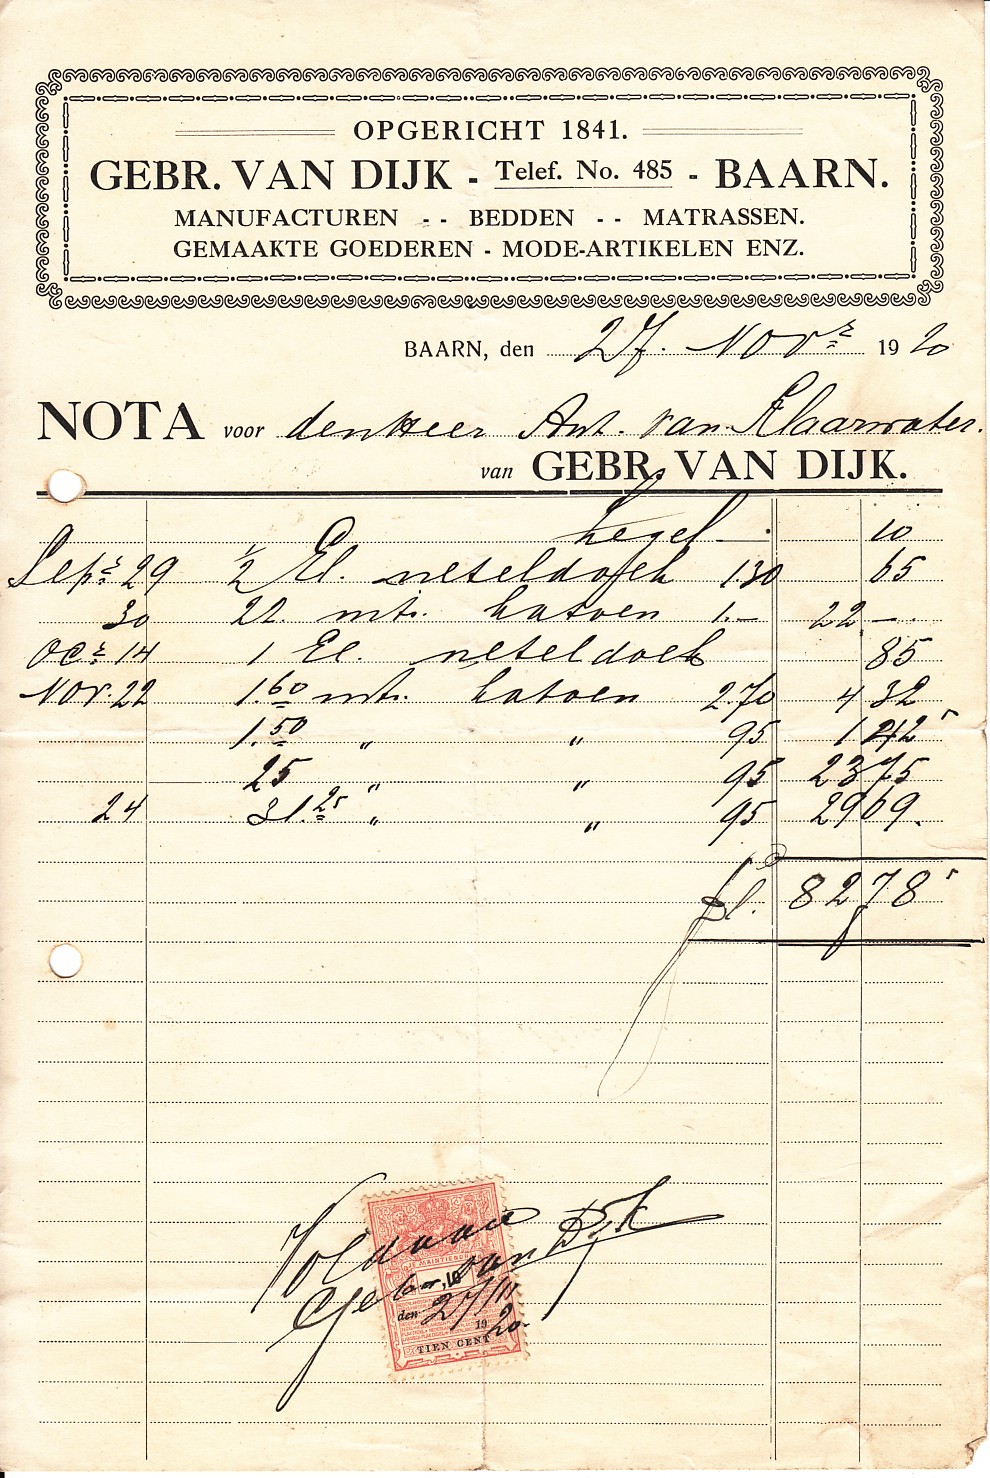 OPGERICHT 1841.
GEBR. VAN DIJK - Telef. No. 485 - BAARN.
MANUFACTUREN - - BEDDEN - - MATRASSEN.
GEMAAKTE GOEDEREN - MODE-ARTIKELEN ENZ.
BAARN, den 27. Novr 1920
NOTA voor den Heer Ant. van Klaarwater.
van GEBR. VAN DIJK.
Zegel - 10
Sepr 29 1/2 El. neteldoek 1.30 65
30 22. mtr. katoen 1.- 22 -.
Ocr 14 1 El. neteldoek 85
Nov. 22 1.60 mtr. katoen 2.70 4 32
1.50 " " 95 1 42⁵
25 " " 95 23 75
24 31.25 " " 95 29 69.
fl. 82 78⁵
Voldaan
Gebr. van Dijk
JE MAINTIENDRAI
den 27/11
1920.
TIEN CENT